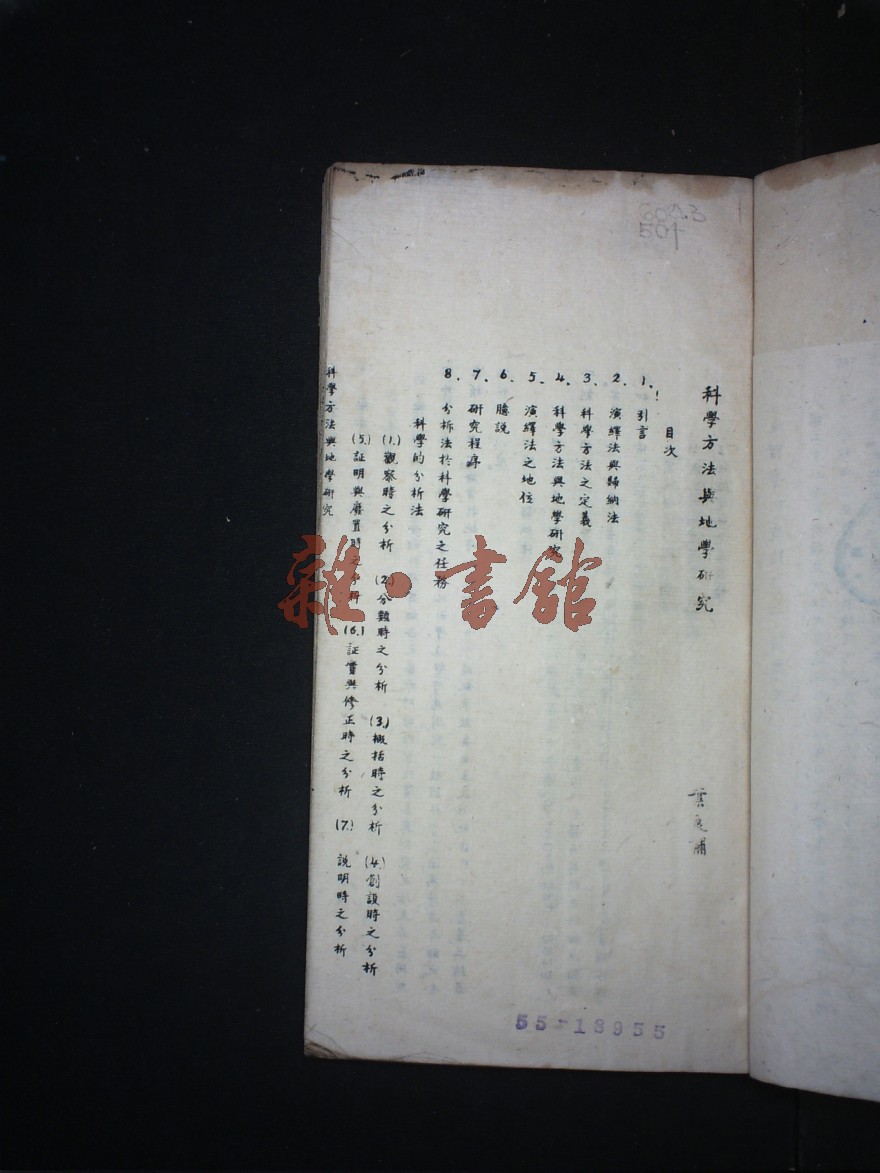 科學方法與地學研究
葉良輔
目次
1. 引言
2. 演繹法與歸納法
3. 科學方法之定義
4. 科學方法與地學研究
5. 演繹法之地位
6. 臆説
7. 研究程序
8. 分析法於科學研究之任務
科學的分析法
(1.) 觀察時之分析 (2.) 分類時之分析 (3.) 概括時之分析 (4.) 創設時之分析
(5.) 証明與廢置時之分析 (6.) 証實與修正時之分析 (7.) 說明時之分析
科學方法與地學研究
55-18955
雜·書館